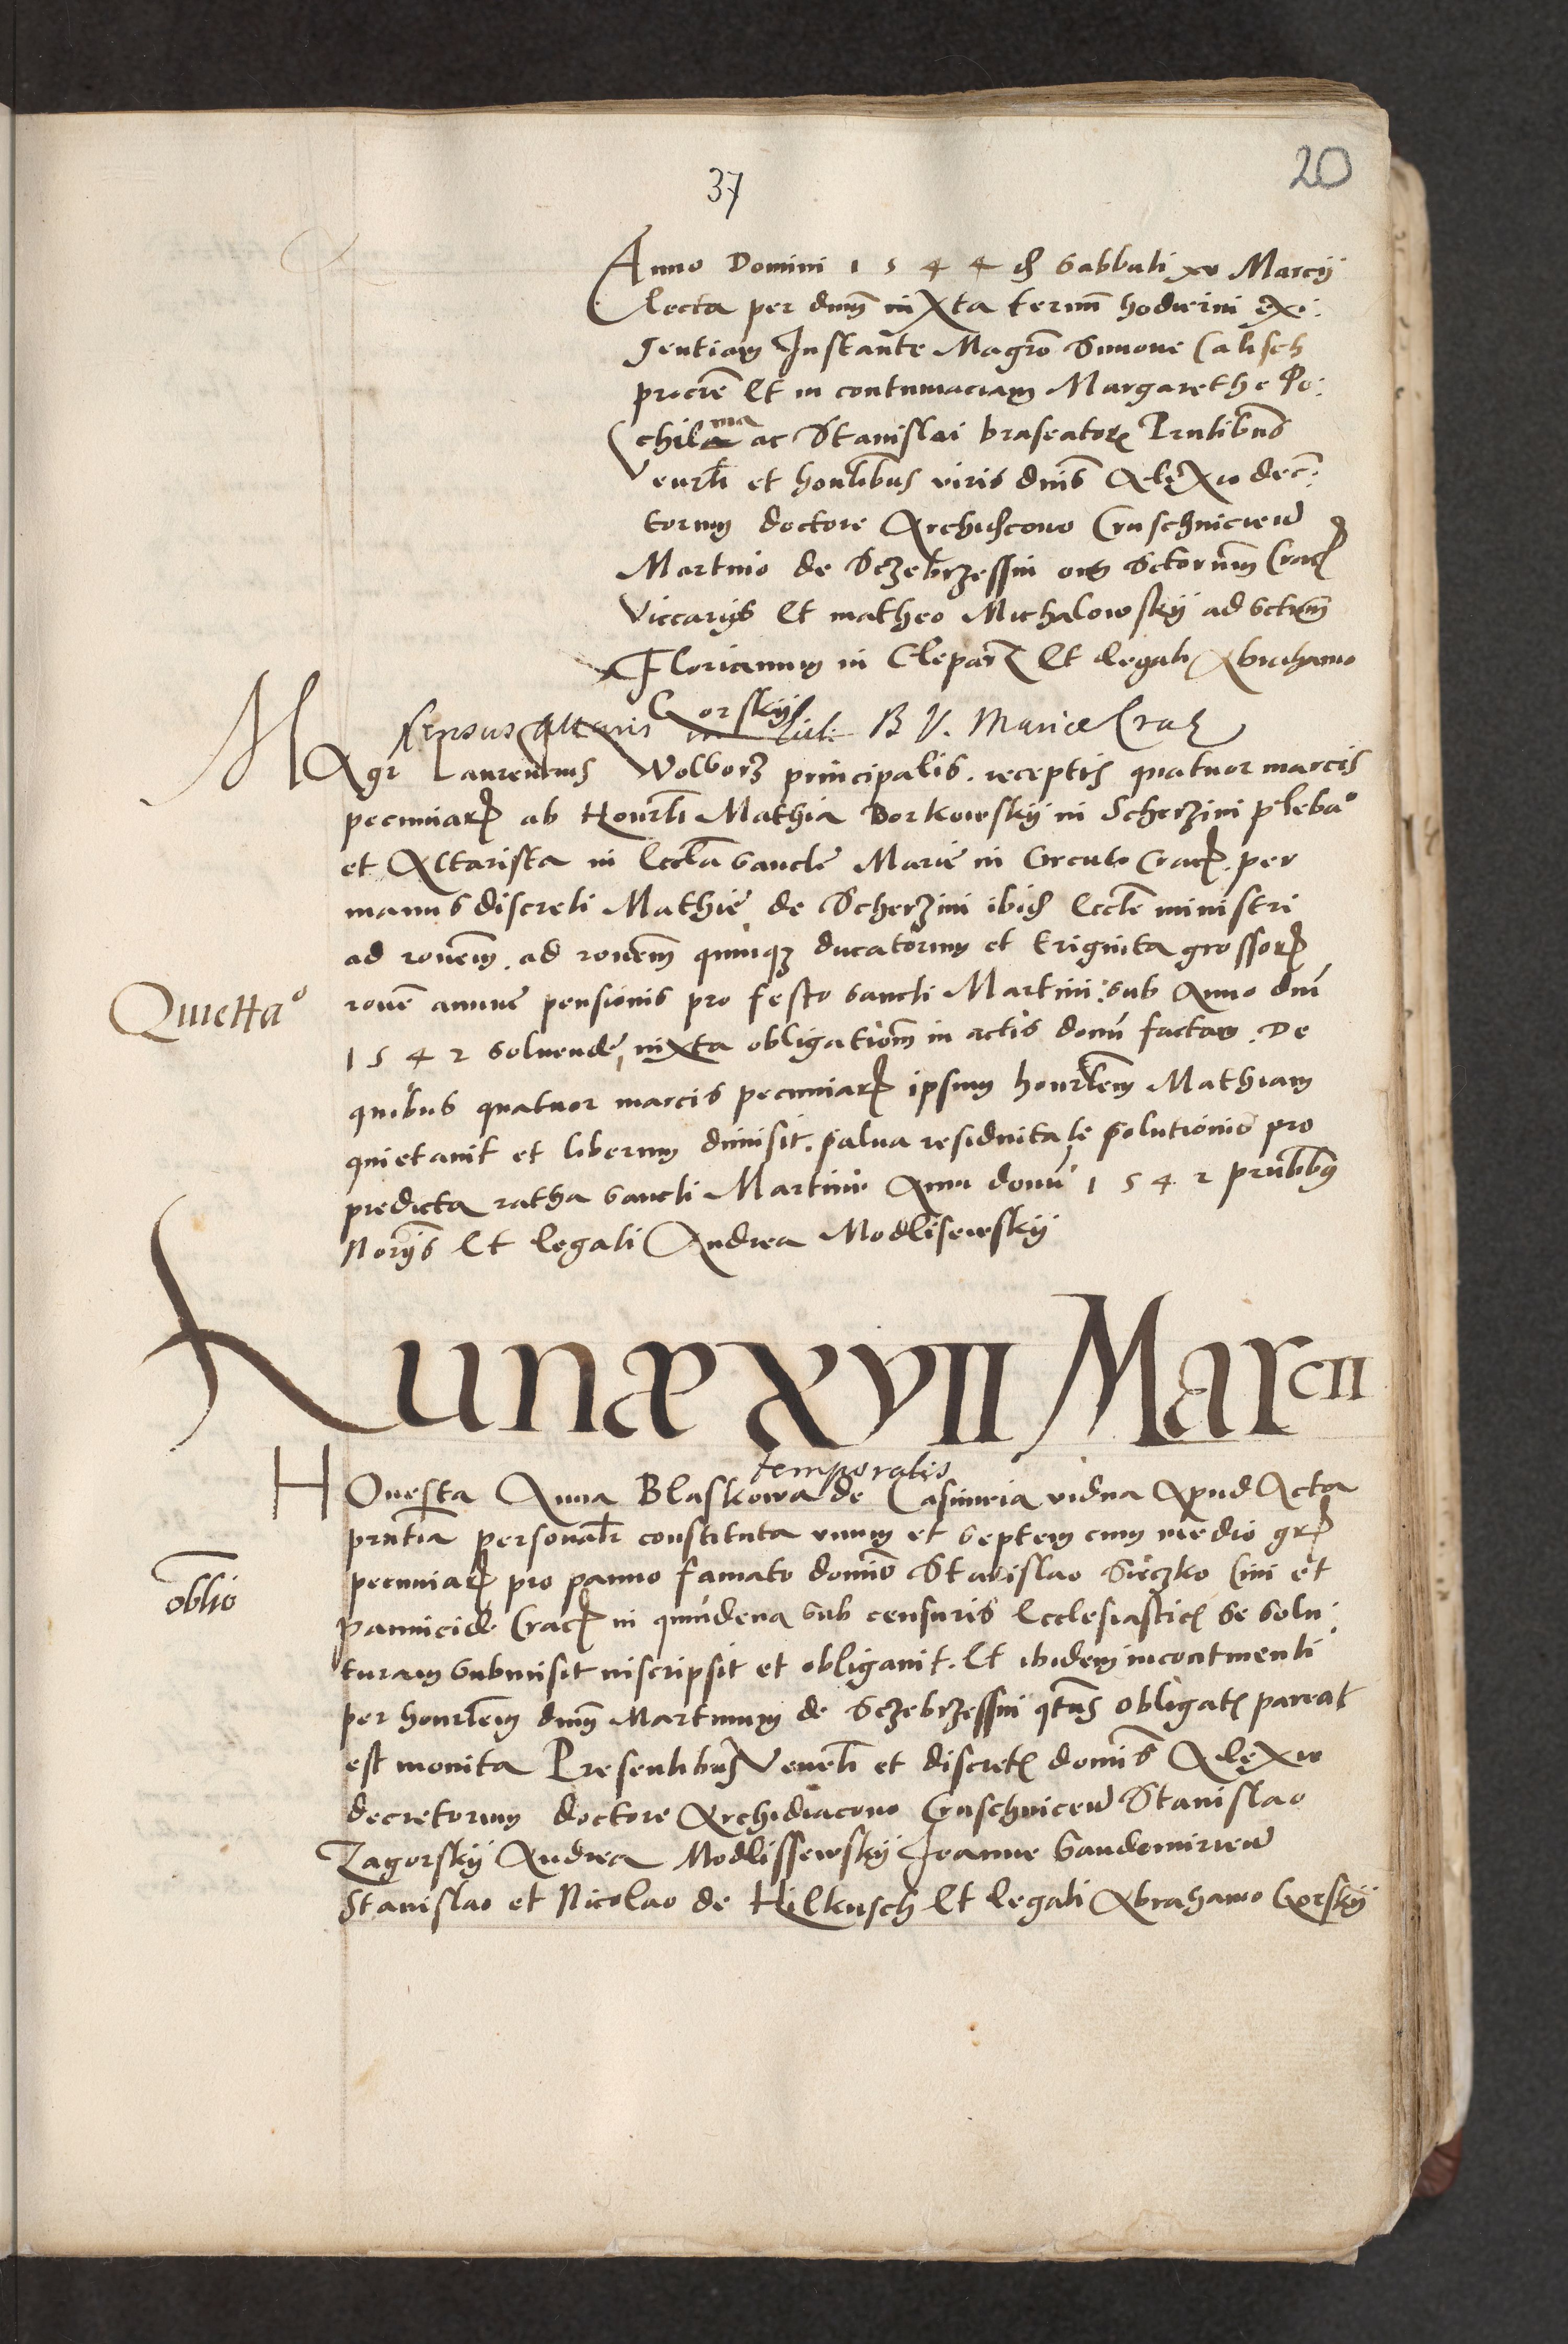 37
20
Anno Domini 1544 d Sabbati xv Marcij
Lecta per dnm iuxta termi hodierni exi:
gentiam Instante Magro Simone Calisch
procre Et in contumaciam Margarethe Po:
chilama ac Stanislai braseator Prntibus
Venrli et honlibus viris dnis Alexio dec:
torum doctore Archidcono Cruschvicien
Martino de Sczebrzessin om Sctorum Crac
Viccarijs Et matheo Michalowskij ad Sctum
Florianum in Clepar Et legali Abrahamo
Gorskij
census altaris B V. Mariæ Crac
Magr Laurentius Wolborz principalis. receptis quatuor marcis
pecuniar ab Honrli Mathia Borkowskij in Scherzini pleba°
et Altarista in Eccla Sancte Marie in Circulo Crac. per
manus discreti Mathie de Scherzini ibid Eccle ministri
ad ronem. ad ronem quinqz ducatorum et triginta grossor
Quietta°
rone annue pensionis pro festo Sancti Martini: sub Anno dni
1542 Solvende, iuxta obligationem in actis domi factam. De
quibus quatuor marcis pecuniar ipsum honrlem Mathiam
quietavit et liberum dimisit. salva residuitate solutionis pro
predicta ratha Sancti Martini Anni domi 1542 prntibus
Norijs Et legali Andrea Modlisewskij
Lunæ XVII Marcii
temporalis
Honesta Anna Blaskowa de Casimiria vidua Apud Acta
prntia personalr constituta unum et Septem cum medio gr
oblio
pecuniar pro panno famato domino Stanislao Sieczko Civi et
pannicide Crac in quindena Sub censuris Ecclesiastic se Solu:
turam Submisit inscripsit et obligavit. Et ibidem incontinenti
per honrlem dnum Martinum de Sczebrzessin qtus obligat pareat
est monita Presentibus Venrli et discret domis Alexio
decretorum doctore Archidiacono Cruschvicien Stanislao
Zagorskij Andrea Modlissewskij Joanne Sandomirien
Stanislao et Nicolao de Hilkusch Et legali Abrahamo Gorskij